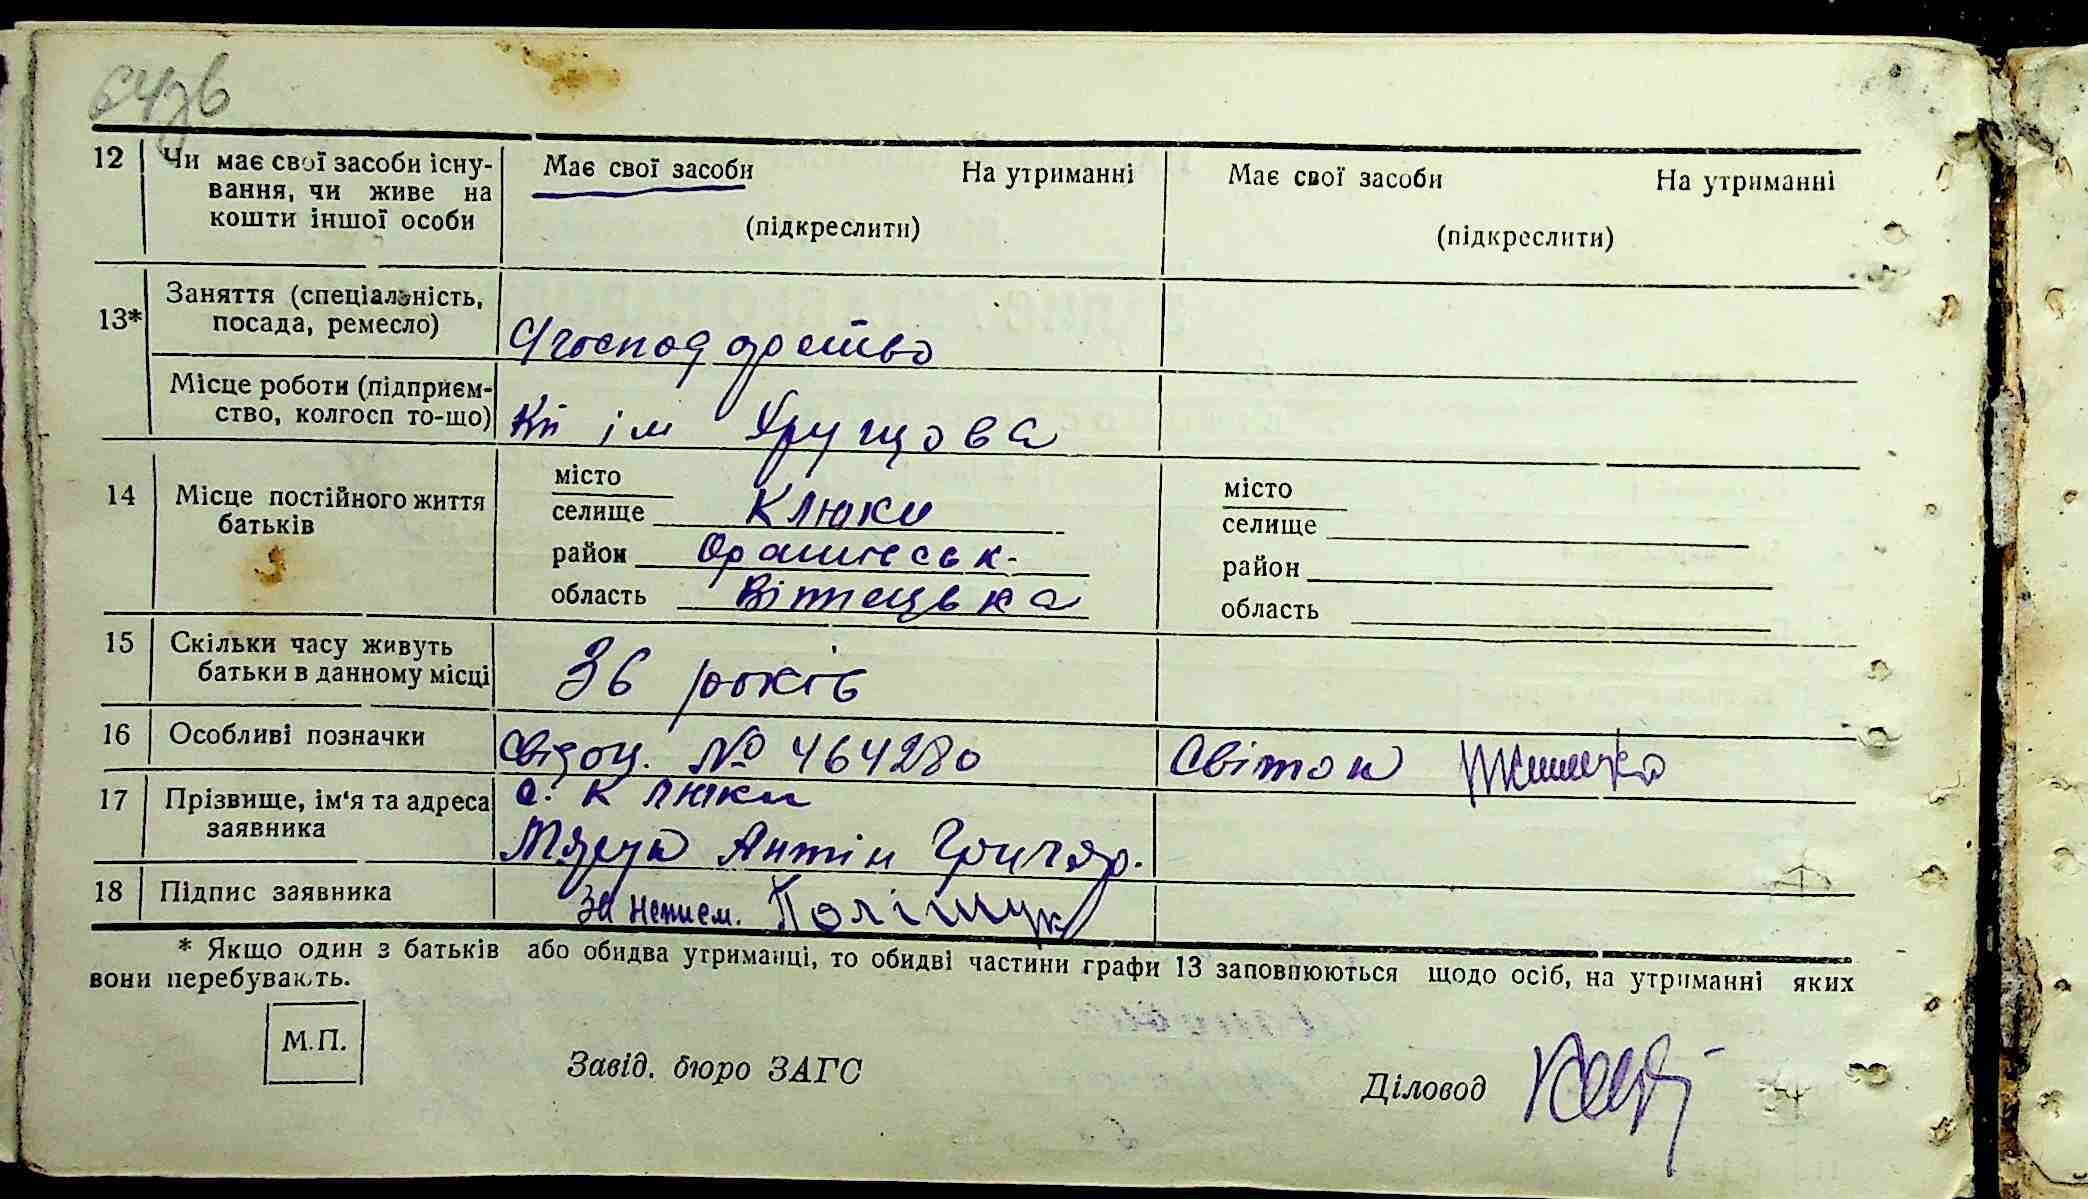 64зв
12 Чи має свої засоби існу- Має свої засоби На утриманні Має свої засоби На утриманні
вання, чи живе на
кошти іншої особи (підкреслити) (підкреслити)
13* Заняття (спеціальність,
посада, ремесло) С/господарство
Місце роботи (підприєм-
ство, колгосп то-що) Кп ім Хрущова
14 Місце постійного життя
батьків
місто місто
селище Клюки селище
район Оратівськ. район
область Вінницька область
15 Скільки часу живуть
батьки в данному місці 36 років
16 Особливі позначки Свідоц. № 464280 Світок
17 Прізвище, ім'я та адреса
заявника
с. Клюки
Антін Григор.
18 Підпис заявника За неписм. Поліщук
* Якщо один з батьків або обидва утриманці, то обидві частини графи 13 заповнюються щодо осіб, на утриманні яких
вони перебувають.
М.П.
Завід. бюро ЗАГС
Діловод